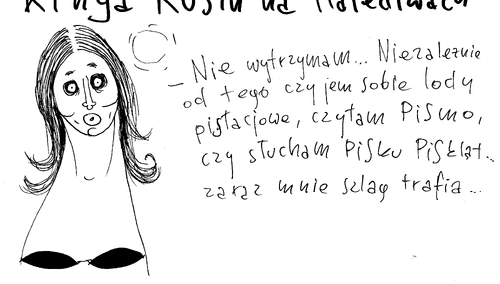 Kinga Rusin na Malediwach
– Nie wytrzymam... Niezależnie
od tego czy jem sobie lody
pistacjowe, czytam PiSmo,
czy słucham PiSku PiSkląt...
zaraz mnie szlag trafia...